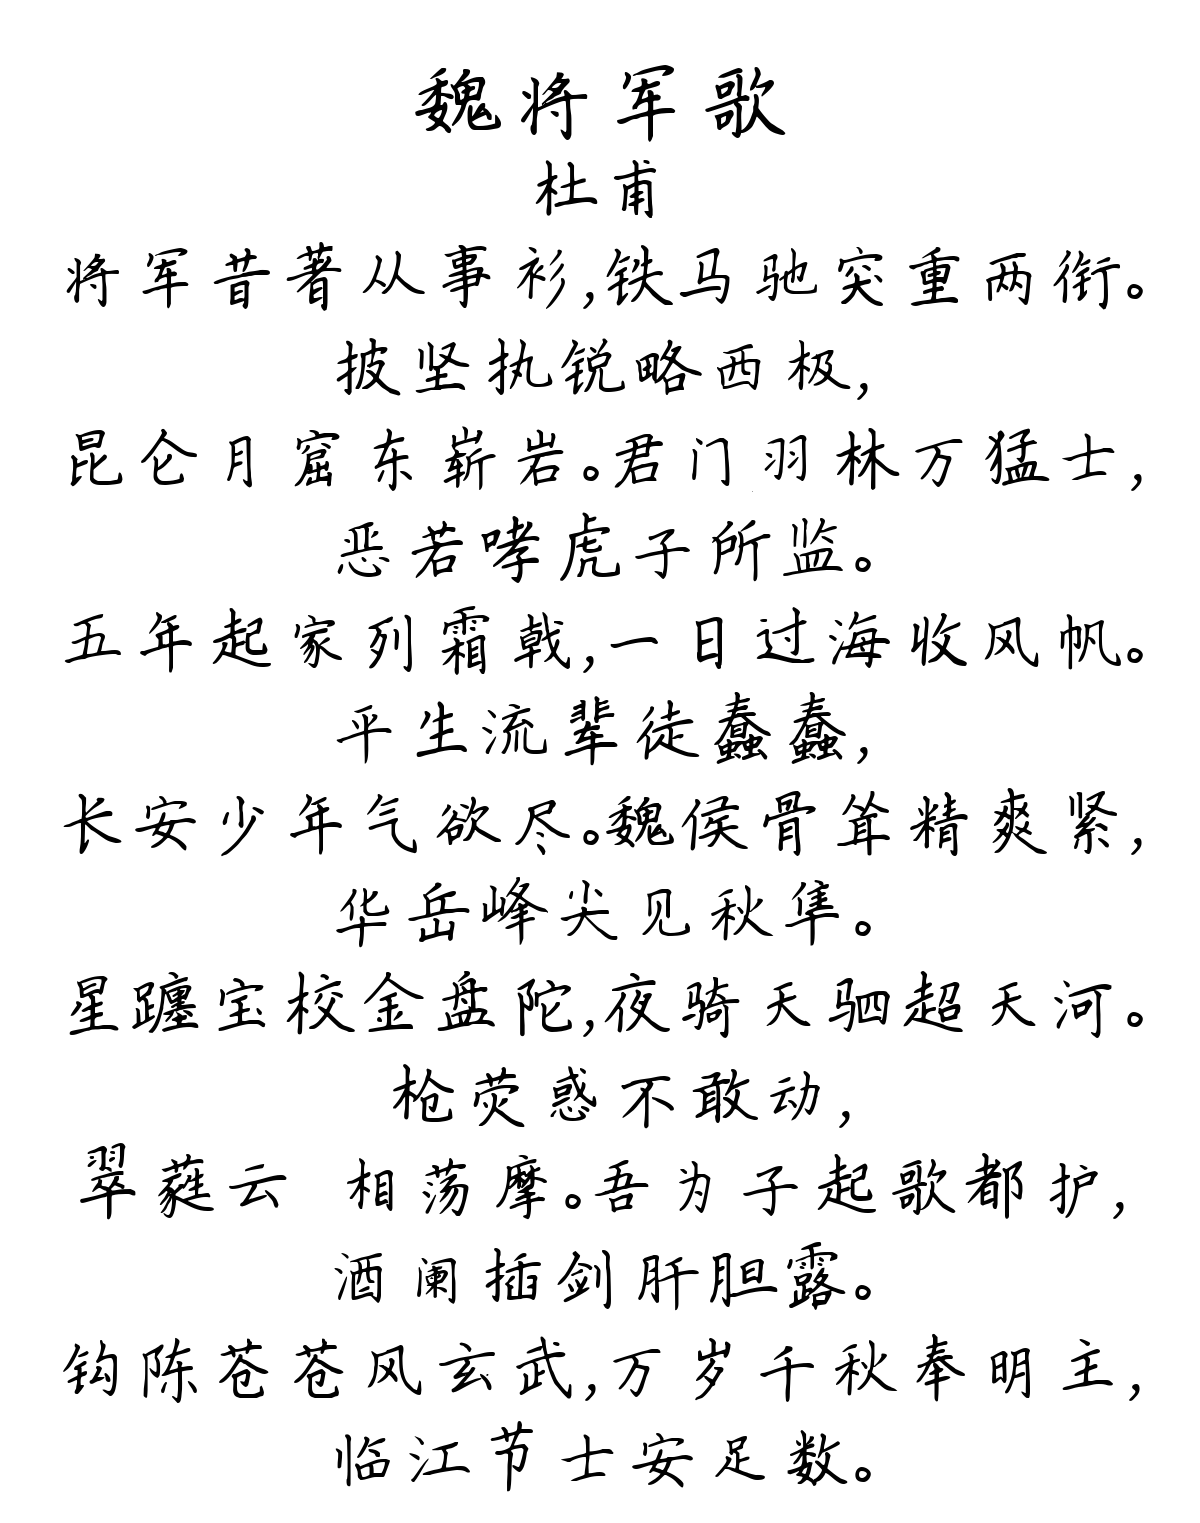 魏将军歌
杜甫
将军昔著从事衫,铁马驰突重两衔。
披坚执锐略西极,
昆仑月窟东崭岩。君门羽林万猛士,
恶若哮虎子所监。
五年起家列霜戟,一日过海收风帆。
平生流辈徒蠢蠢,
长安少年气欲尽。魏侯骨耸精爽紧,
华岳峰尖见秋隼。
星躔宝校金盘陀,夜骑天驷超天河。
枪荧惑不敢动,
翠蕤云 相荡摩。吾为子起歌都护,
酒阑插剑肝胆露。
钩陈苍苍风玄武,万岁千秋奉明主,
临江节士安足数。